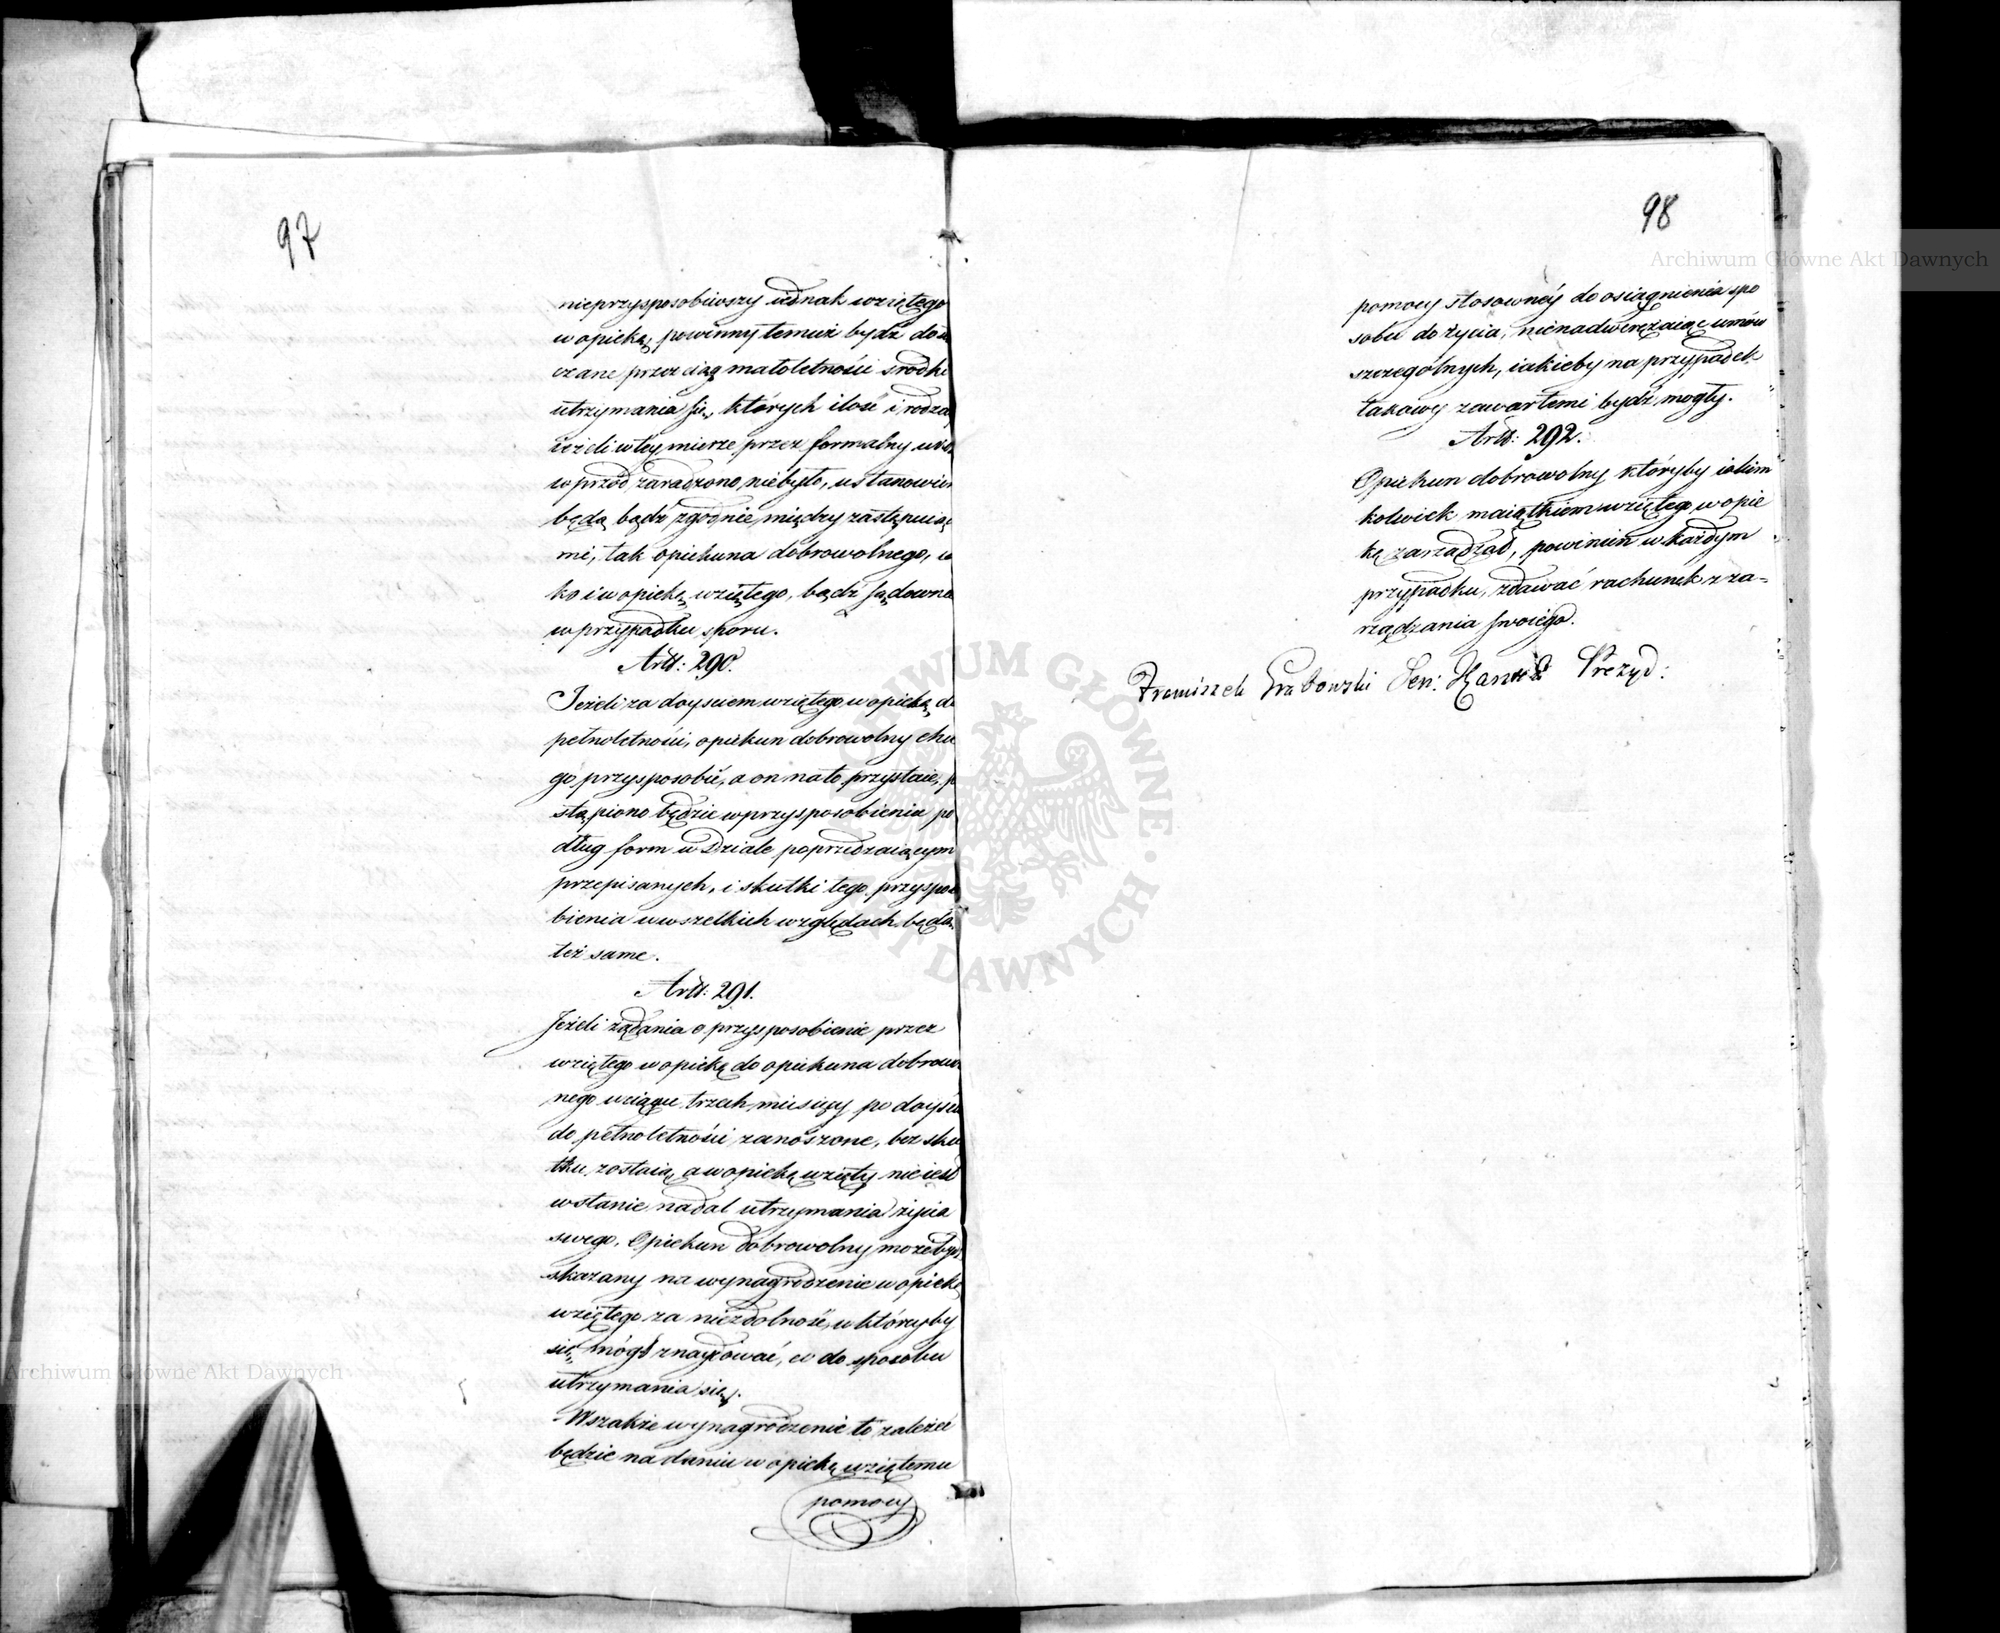 97
nieprzysposobiwszy iednak wziętego
w opiekę, powinny temuż bydź dosta
czane przez ciąg małoletności srodki
utrzymania się, których ilość i rodzay
ieżeli w tey mierze przez formalny układ
wprzód zaradzono niebyło, ustanowione
będą bądź zgodnie między zastępuiące
mi, tak opiekuna dobrowolnego, ia
ko i w opiekę wziętego, bądź sądownie
w przypadku sporu.
Artt: 290.
Jeżeli za doysciem wziętego w opiekę do
pełnoletności, opiekun dobrowolny chce
go przysposobić, a on na to przystaie, po
stąpiono będzie w przysposobieniu po
dług form w Dziale poprzedzaiącym
przepisanych, i skutki tego przysposo
bienia w wszelkich względach będą
też same.
Artt: 291.
Jeżeli żądania o przysposobienie przez
wziętego w opiekę do opiekuna dobrowol
nego w ciągu trzech miesięcy po doyściu
do pełnoletności zanoszone, bez sku
tku zostaią, a w opiekę wzięty nie iest
w stanie nadal utrzymania życia
swego. Opiekun dobrowolny może bydź
skazany na wynagrodzenie w opiekę
wziętego za niezdolność, w któreyby
się mógł znaydować, co do sposobu
utrzymania się.
Wszakże wynagrodzenie to zależeć
będzie na daniu w opiekę wziętemu
pomocy
98
pomocy stosownéy do osiągnienia spo
sobu do życia, nienadwerężaiąc umów
szczególnych, iakieby na przypadek
takowy zawartemi bydź mogły.
Artt: 292.
Opiekun dobrowolny któryby iakim
kolwiek maiątkiem wziętego w opie
kę zarządzał, powinien w każdym
przypadku, zdawać rachunek z za=
rządzania swoiego.
Franciszek Grabowski Sen: Kaszt: Prezyd:
Archiwum Główne Akt Dawnych
Archiwum Główne Akt Dawnych
ARCHIWUM GŁÓWNE AKT DAWNYCH